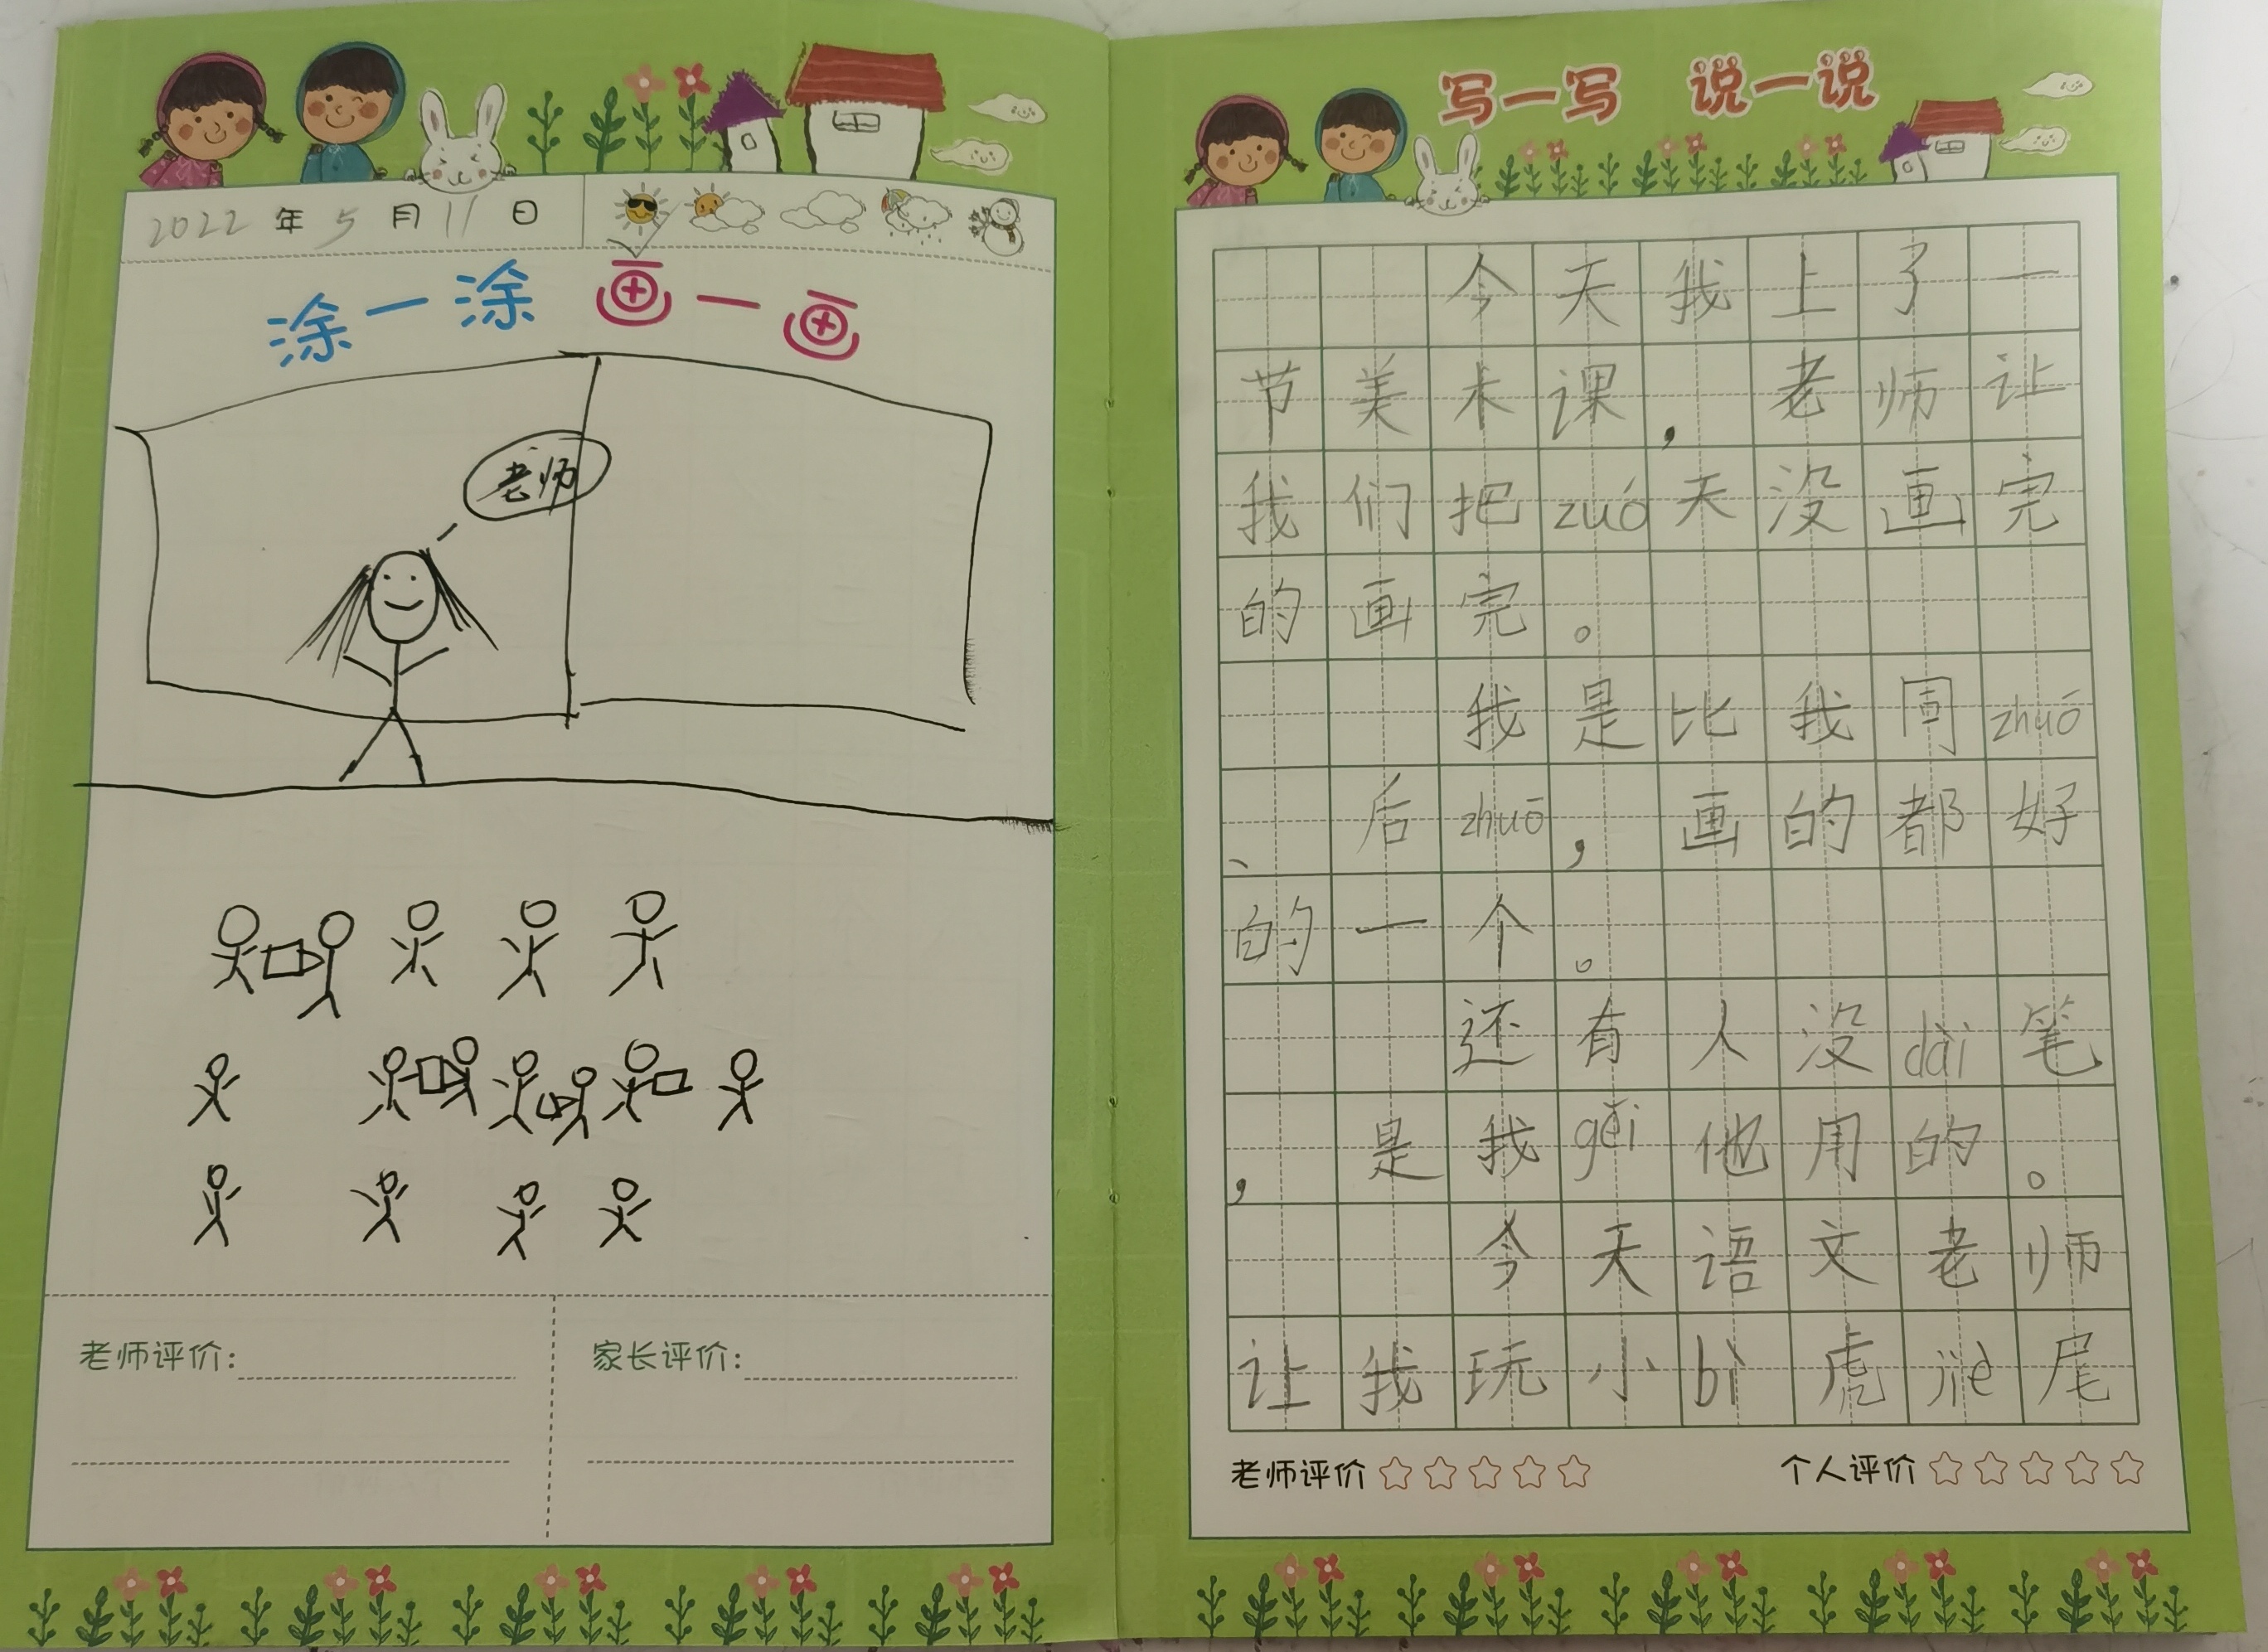 2022年5月11日
涂一涂 画一画
老师
老师评价:
家长评价:
写一写 说一说
今天我上了一
节美术课,老师让
我们把zuó天没画完
的画完。
我是比我同zhuō
、后zhuō,画的都好
的一个。
还有人没dài笔
,是我gěi他用的。
今天语文老师
让我玩小bì虎jiè尾
老师评价
个人评价